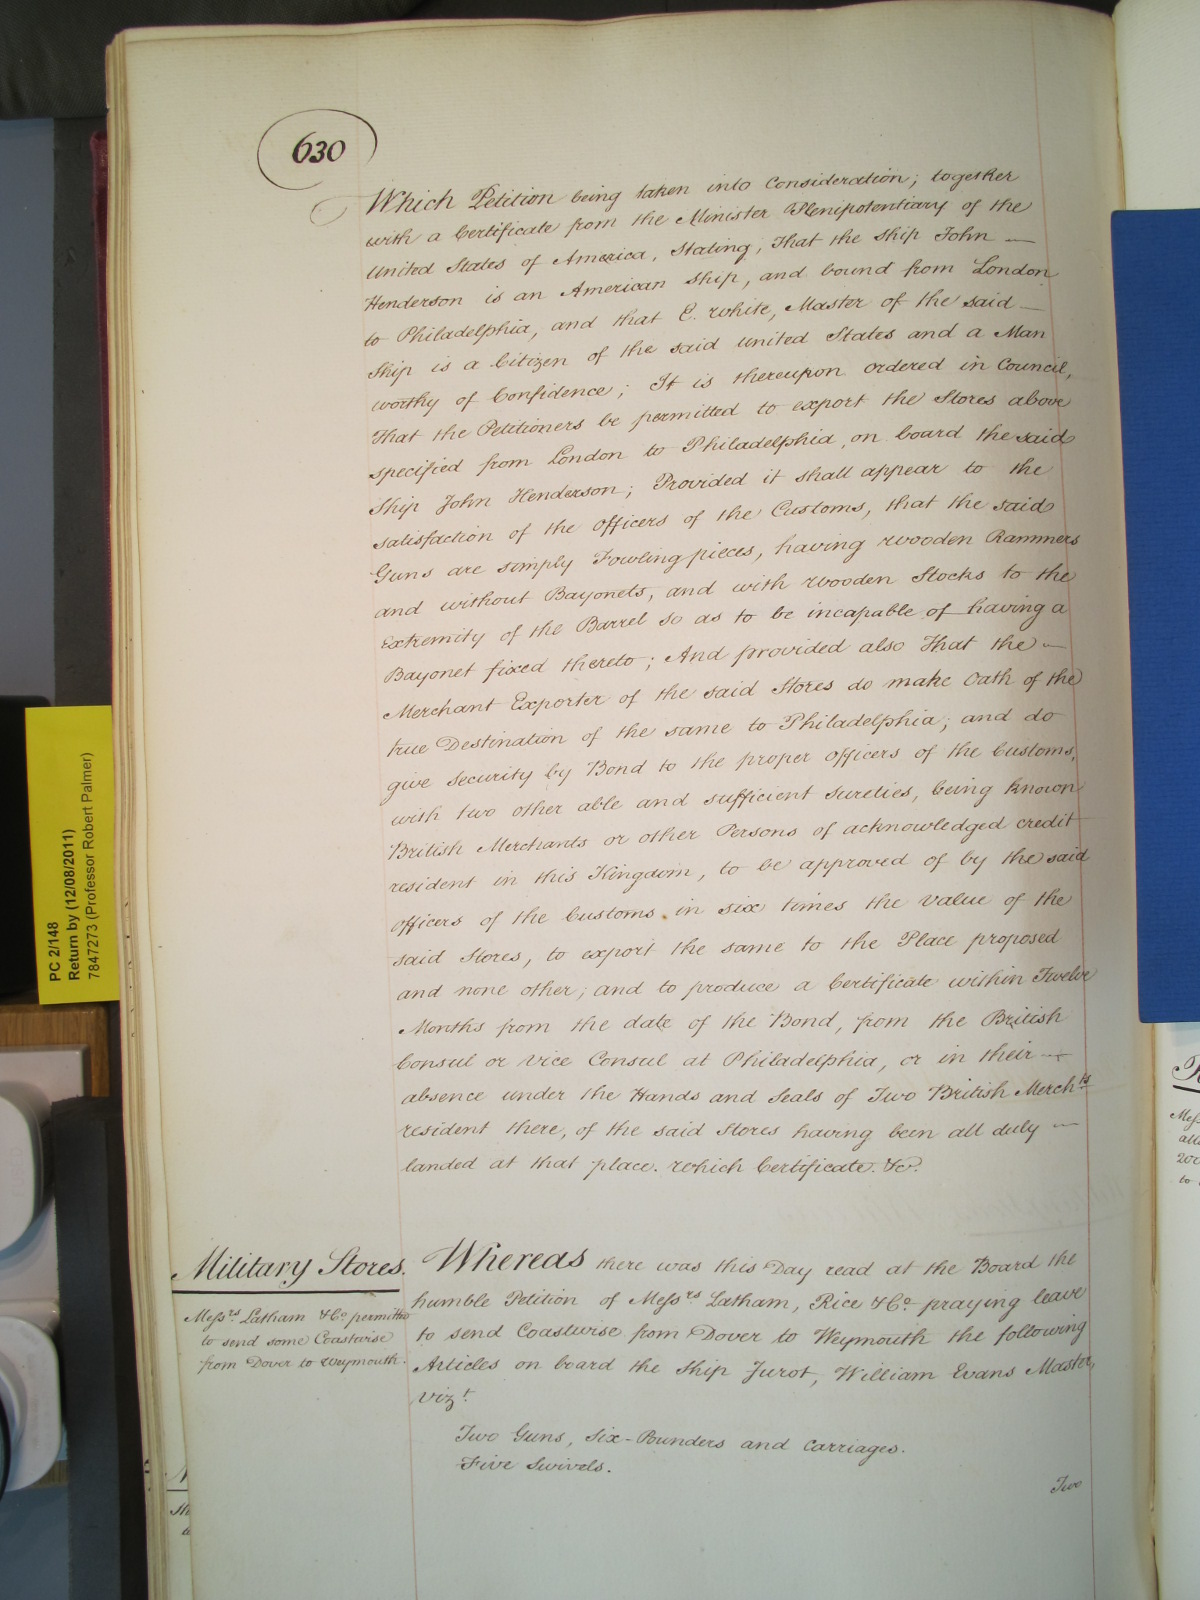 630
Which Petition being taken into Consideration; together
with a Certificate from the Minister Plenipotentiary of the
United States of America, Stating, That the Ship John —
Henderson is an American Ship, and bound from London
to Philadelphia, and that E. White, Master of the said —
Ship is a Citizen of the said United States and a Man
worthy of Confidence; It is thereupon ordered in Council,
That the Petitioners be permitted to export the Stores above
specified from London to Philadelphia, on board the said
Ship John Henderson; Provided it shall appear to the
satisfaction of the Officers of the Customs, that the said
Guns are simply Fowling pieces, having wooden Rammers
and without Bayonets, and with wooden Stocks to the
Extremity of the Barrel so as to be incapable of having a
Bayonet fixed thereto; And provided also That the —
Merchant Exporter of the said Stores do make Oath of the
true Destination of the same to Philadelphia; and do
give Security by Bond to the proper Officers of the Customs,
with two other able and sufficient Sureties, being known
British Merchants or other Persons of acknowledged credit
resident in this Kingdom, to be approved of by the said
Officers of the Customs in six times the Value of the
said Stores, to export the same to the Place proposed
and none other; and to produce a Certificate within Twelve
Months from the date of the Bond, from the British
Consul or Vice Consul at Philadelphia, or in their —
absence under the Hands and Seals of Two British Merchts
resident there, of the said Stores having been all duly —
landed at that place. which Certificate. &c.
Military Stores.
Messrs. Latham & Co permitted
to send some Coastwise
from Dover to Weymouth.
Whereas there was this Day read at the Board the
humble Petition of Messrs Latham, Rice & Co. praying leave
to send Coastwise from Dover to Weymouth the following
Articles on board the Ship Jurot, William Evans Master,
Vizt.
Two Guns, Six-Pounders and Carriages.
Five Swivels.
Two
PC 2/148
Return by (12/08/2011)
7847273 (Professor Robert Palmer)